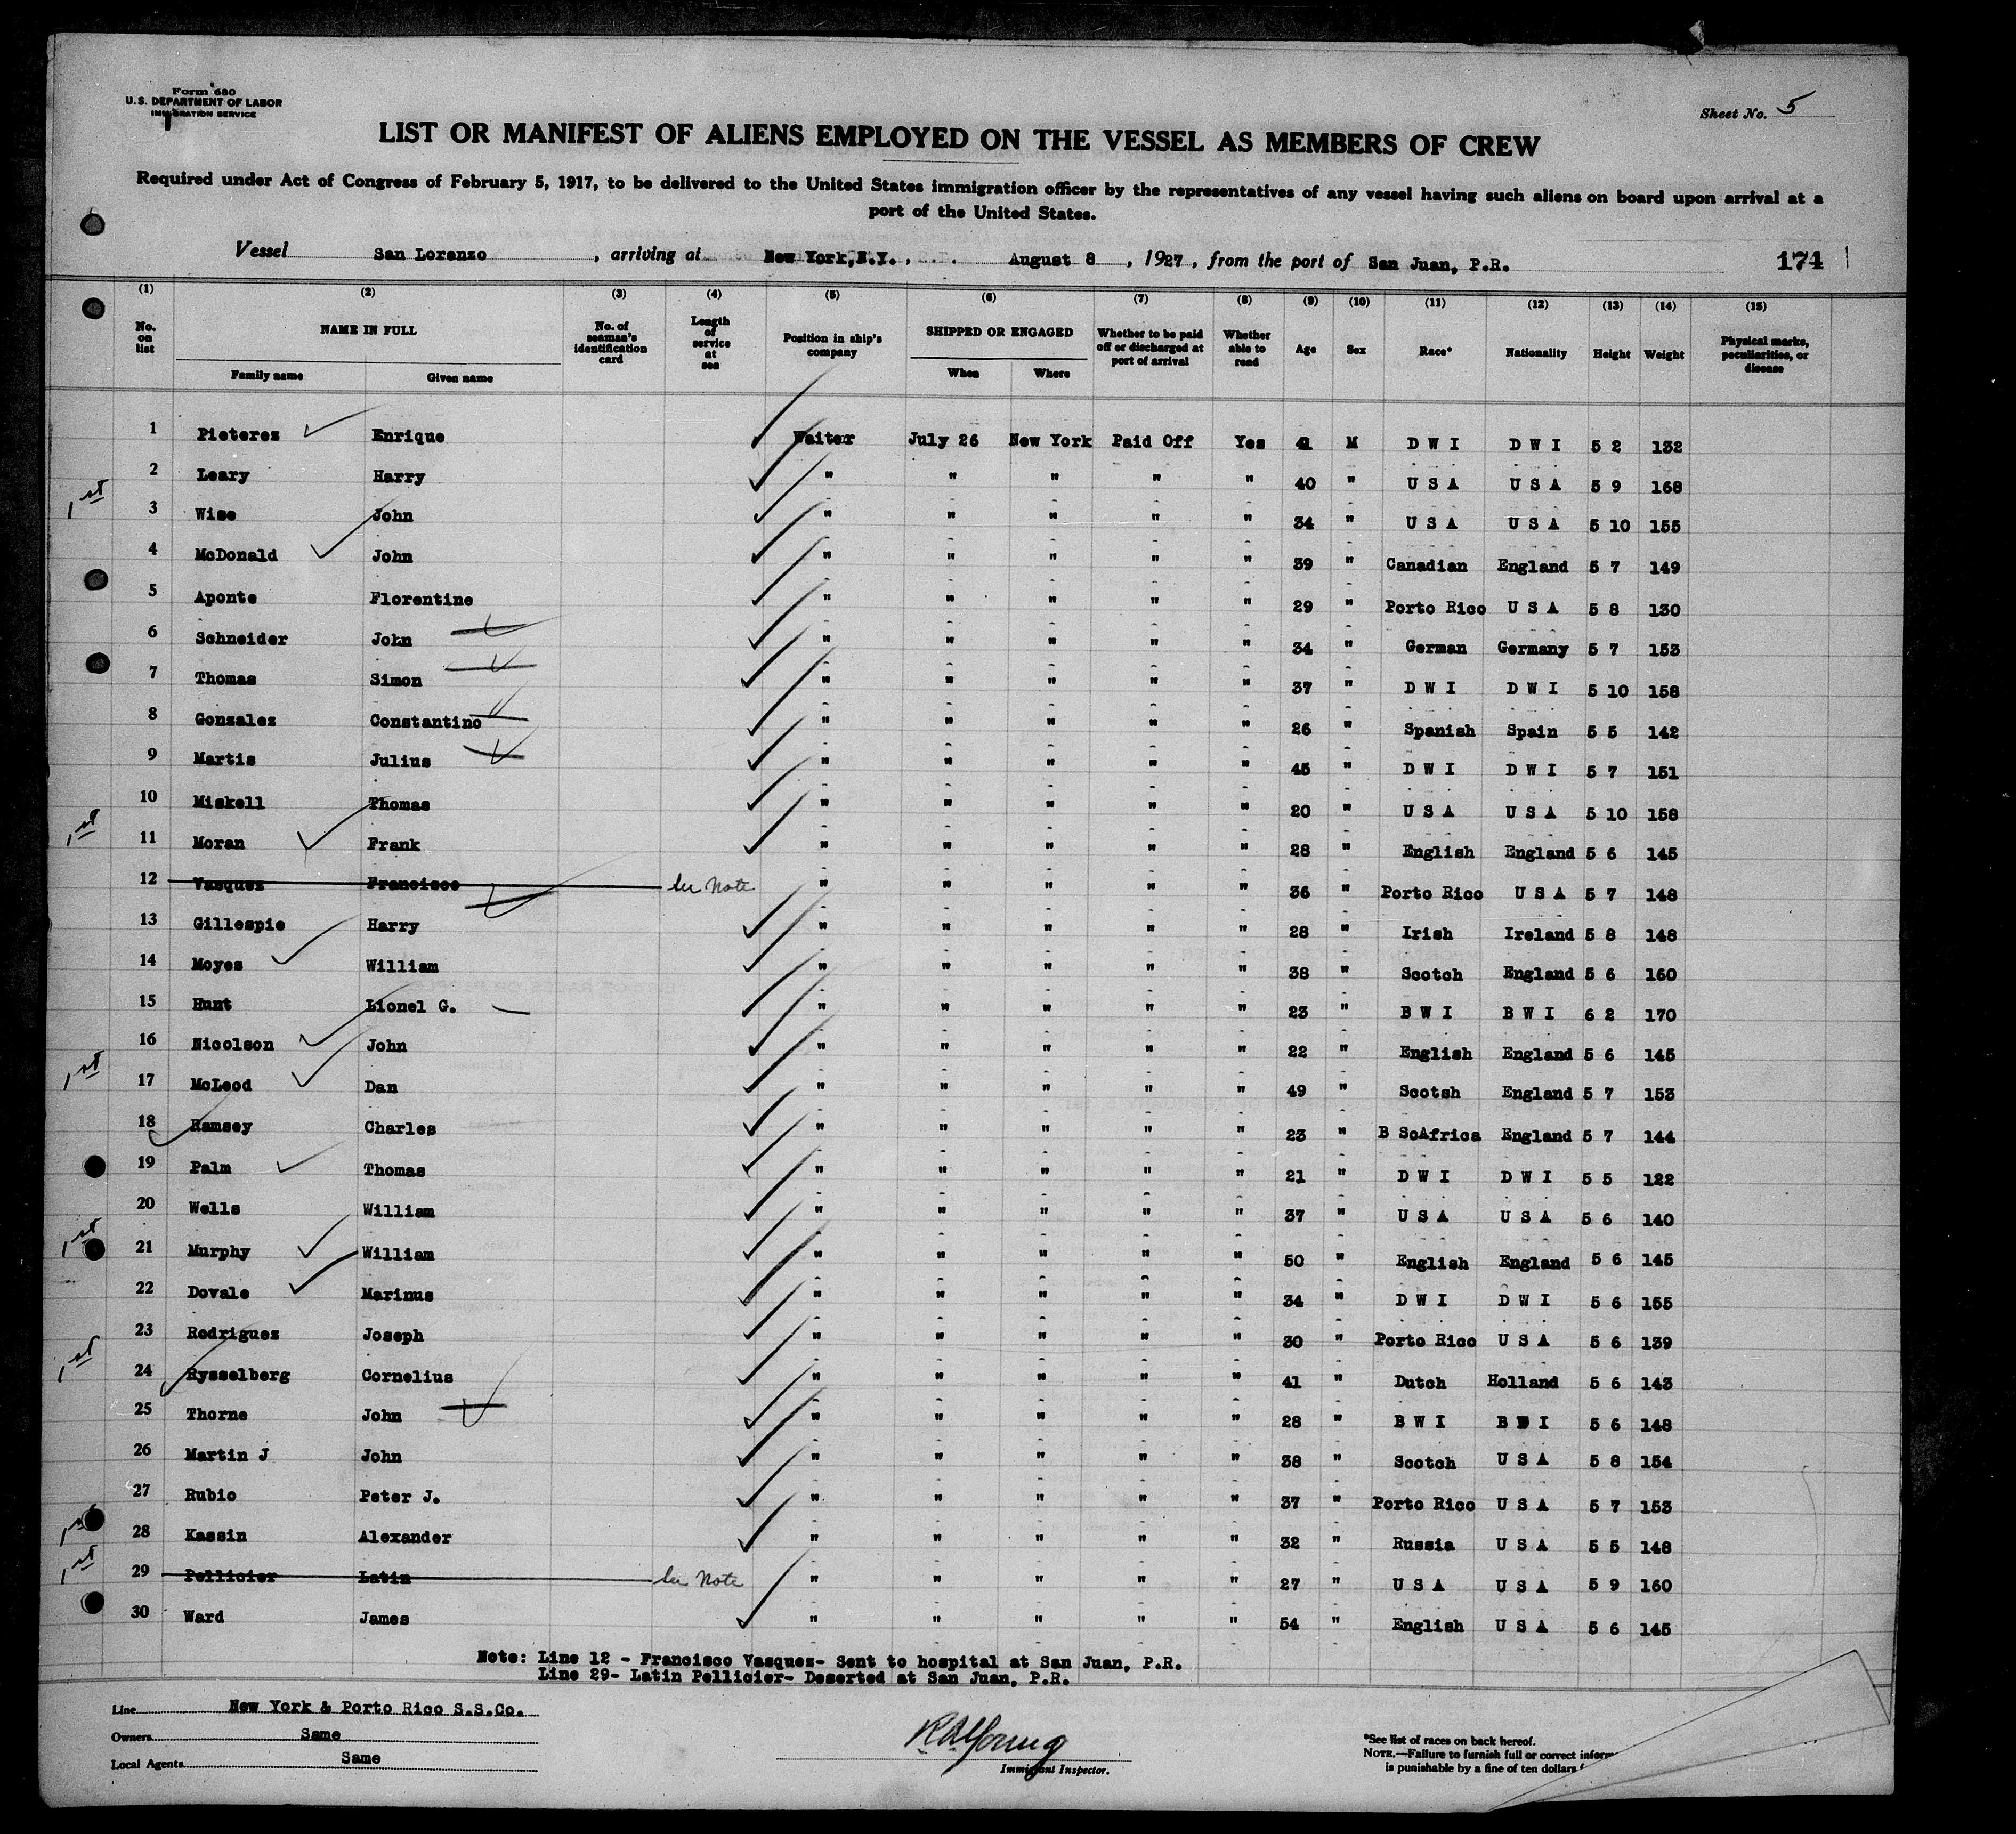 Form 680
U.S. DEPARTMENT OF LABOR
IMMIGRATION SERVICE
Sheet No. 5
LIST OR MANIFEST OF ALIENS EMPLOYED ON THE VESSEL AS MEMBERS OF CREW
Required under Act of Congress of February 5, 1917, to be delivered to the United States immigration officer by the representatives of any vessel having such aliens on board upon arrival at a
port of the United States.
Vessel San Lorenzo, arriving at New York, N.Y., August 8, 1927, from the port of San Juan, P.R. 174
(1) (2) (3) (4) (5) (6) (7) (8) (9) (10) (11) (12) (13) (14) (15)
No. on list NAME IN FULL Family name Given name No. of seaman's identification card Length of service at sea Position in ship's company SHIPPED OR ENGAGED When Where Whether to be paid off or discharged at port of arrival Whether able to read Age Sex Race* Nationality Height Weight Physical marks, peculiarities, or disease
1 Pieterez Enrique Waiter July 26 New York Paid Off Yes 41 M D W I D W I 5 2 132
1st
2 Leary Harry " " " " " 40 " U S A U S A 5 9 168
3 Wise John " " " " " 34 " U S A U S A 5 10 155
4 McDonald John " " " " " 39 " Canadian England 5 7 149
5 Aponte Florentine " " " " " 29 " Porto Rico U S A 5 8 130
6 Schneider John " " " " " 34 " German Germany 5 7 153
7 Thomas Simon " " " " " 37 " D W I D W I 5 10 158
8 Gonzalez Constantino " " " " " 26 " Spanish Spain 5 5 142
9 Martis Julius " " " " " 45 " D W I D W I 5 7 151
10 Miskell Thomas " " " " " 20 " U S A U S A 5 10 158
1st
11 Moran Frank " " " " " 28 " English England 5 6 145
12 Vasquez Francisco See Note " " " " " 36 " Porto Rico U S A 5 7 148
13 Gillespie Harry " " " " " 28 " Irish Ireland 5 8 148
14 Moyes William " " " " " 38 " Scotch England 5 6 160
15 Hunt Lionel G. " " " " " 23 " B W I B W I 6 2 170
16 Nicolson John " " " " " 22 " English England 5 6 145
1st
17 McLeod Dan " " " " " 49 " Scotsh England 5 7 153
18 Ramsey Charles " " " " " 23 " B SoAfrica England 5 7 144
19 Palm Thomas " " " " " 21 " D W I D W I 5 5 122
20 Wells William " " " " " 37 " U S A U S A 5 6 140
1st
21 Murphy William " " " " " 50 " English England 5 6 145
22 Dovale Marinus " " " " " 34 " D W I D W I 5 6 155
23 Rodriguez Joseph " " " " " 30 " Porto Rico U S A 5 6 139
1st
24 Rysselberg Cornelius " " " " " 41 " Dutch Holland 5 6 143
25 Thorne John " " " " " 28 " B W I B W I 5 6 148
26 Martin J John " " " " " 38 " Scotch U S A 5 8 154
27 Rubio Peter J. " " " " " 37 " Porto Rico U S A 5 7 153
28 Kassin Alexander " " " " " 32 " Russia U S A 5 5 148
1st
29 Pellicier Latin See Note " " " " " 27 " U S A U S A 5 9 160
30 Ward James " " " " " 54 " English U S A 5 6 145
Note: Line 12 - Francisco Vasquez- Sent to hospital at San Juan, P.R.
Line 29- Latin Pellicier- Deserted at San Juan, P.R.
Line New York & Porto Rico S.S.Co.
Owners Same
Local Agents Same
Young
Immigrant Inspector.
*See list of races on back hereof.
NOTE.—Failure to furnish full or correct
is punishable by a fine of ten dollars